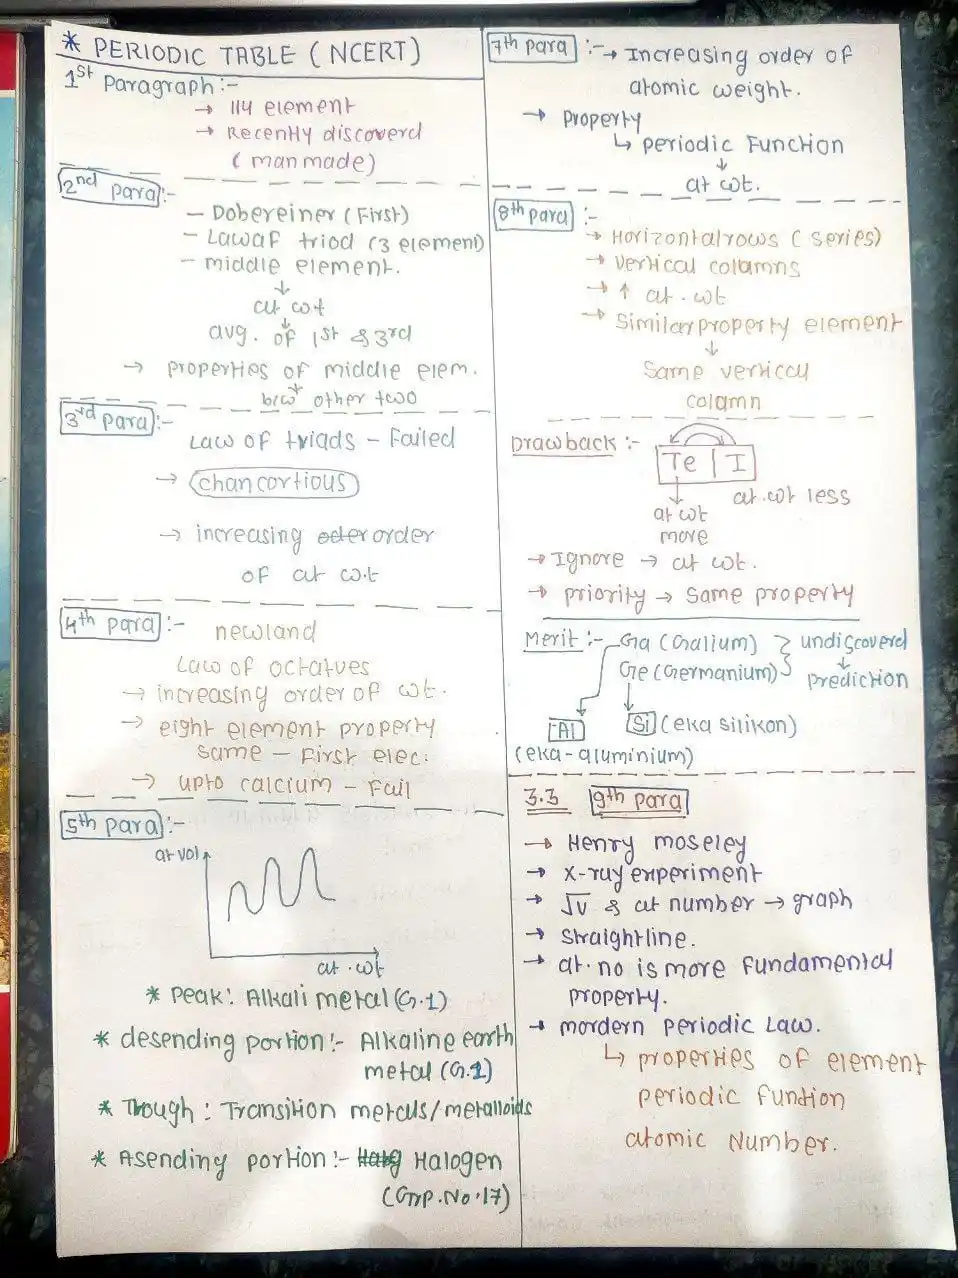 * PERIODIC TABLE ( NCERT)
1st Paragraph :-
→ 114 element
→ Recently discoverd
( man made)
2nd para :-
- Dobereiner ( First)
- Lawaf triod (3 element)
- middle element.
↓
at wt
↓
avg. of 1st & 3rd
→ properties of middle elem.
b/w other two
3rd para :-
Law of triads - Failed
→ chancortious
→ increasing order
of at w.t
4th para :- newland
Law of octatves
→ increasing order of wt.
→ eight element property
same - First elec.
→ upto calcium - Fail
5th para :-
at vol
at . wt
* Peak: Alkali metal (G.1)
* desending portion :- Alkaline earth
metal (G.1)
* Trough : Transition metals/metalloids
* Asending portion :- Halogen
(Grp. No. 17)
7th para :- → Increasing order of
atomic weight.
→ Property
↳ periodic Function
↓
at wt.
8th para :-
→ Horizontalrows ( series)
→ vertical colamns
→ ↑ at . wt
→ Similar property element
↓
Same verticcy
colamn
Drawback :- Te | I
at wt more
at .wt less
→ Ignore → at wt.
→ priority → same property
Merit :- Ga (Gallium) undiscoverd
Ge (Germanium) ↓ prediction
Al Si (eka silikon)
(eka-aluminium)
3.3 9th para
→ Henry moseley
→ x-ray experiment
→ √v & at number → graph
→ straightline.
→ at. no is more fundamental
property.
→ mordern periodic Law.
↳ properties of element
periodic funtion
atomic Number.